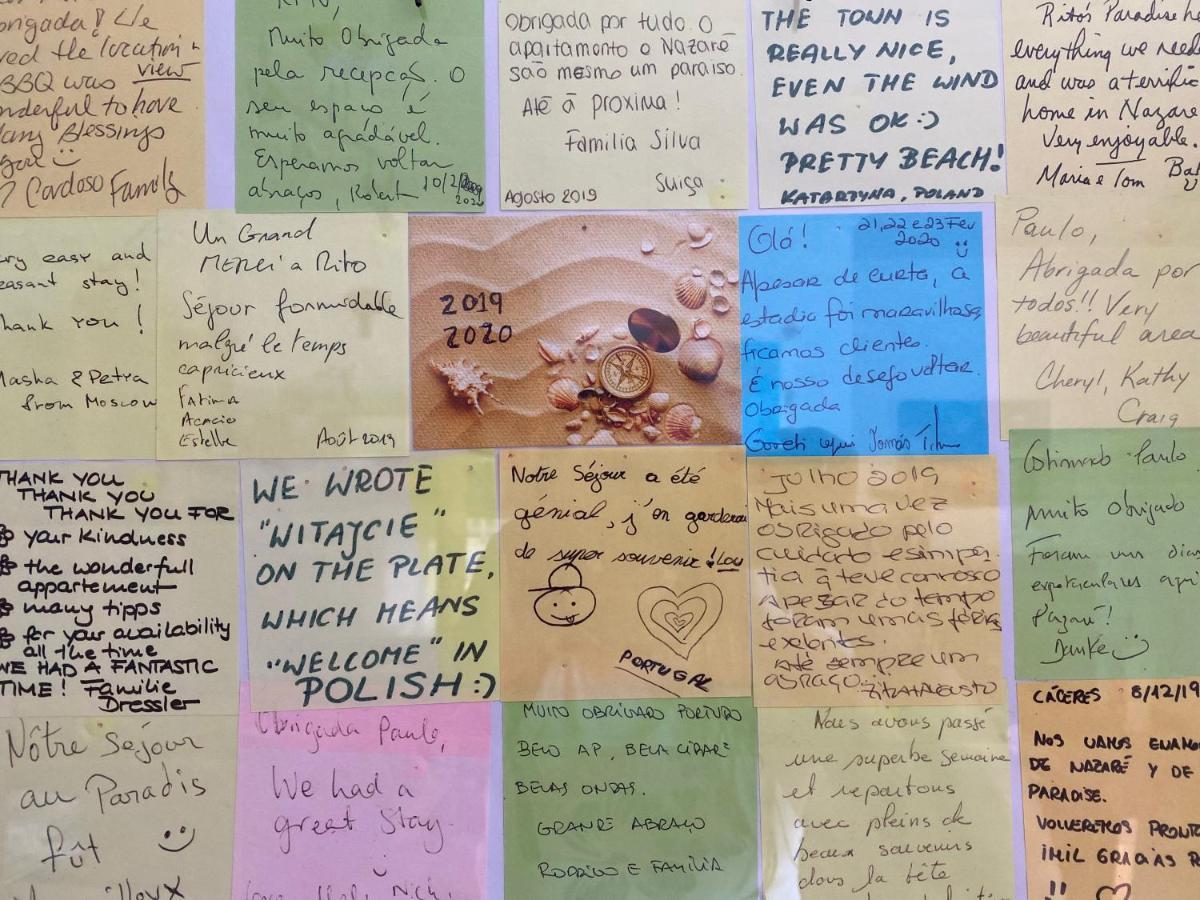 brigada! We
ved the location
BBQ was view
nderful to have
any Blessings
Cardoso Family
Muito Obrigada
pela recepção. O
seu espaço é
muito agradável.
Esperamos voltar
abraços, Robert 10/2/2020
Obrigada por tudo. O
apartamento o Nazaré
são mesmo um paraiso.
Até à proxima!
Familia Silva
Suiça
Agosto 2019
THE TOWN IS
REALLY NICE,
EVEN THE WIND
WAS OK:)
PRETTY BEACH!
KATARZYNA, POLAND
Rito's Paradise ha
everything we need
and was a terrific
home in Nazare
Very enjoyable.
Maria e Tom
ery easy and
easant stay!
hank you!
Masha & Petra
from Moscow
Un Grand
MERCI a Rito
Séjour formidable
malgré le temps
capricieux
Fatima
Acacio
Estelle
Août 2019
2019
2020
Olá! 21,22 e 23 Fev
2020
Apesar de curta, a
estadia foi maravilhosa,
ficamos clientes.
É nosso desejo voltar.
Obrigada
Paulo,
Abrigada por
todos!! Very
beautiful area
Cheryl, Kathy
Craig
THANK YOU
THANK YOU
THANK YOU FOR
your kindness
the wonderfull
appartement
many tipps
for your availability
all the time
WE HAD A FANTASTIC
TIME! Familie
Dressler
WE WROTE
"WITAJCIE"
ON THE PLATE,
WHICH MEANS
"WELCOME" IN
POLISH:)
Notre Séjour a été
génial, j'en garderai
de super souvenir! Lou
PORTUGAL
Julho 2019
Mais uma vez
obrigado pelo
cuidado e simpa-
tia q teve connosco
Apezar do tempo
foram umas férias
exelentes.
até sempre um
abraço.
Paulo
Muito Obrigado
Foram uns dias
espetaculares aqui
Danke
Nôtre Séjour
au Paradis
fût
Obrigada Paulo,
We had a
great stay.
MUITO OBRIGADO PORTUGAL
BELO AP, BELA CIDADE
BELAS ONDAS.
GRANDE ABRAÇO
RODRIGO E FAMÍLIA
Nous avons passé
une superbe semaine
et repartons
avec pleins de
beaux souvenirs
dans la tête
CÁCERES 8/12/19
NOS VAMOS ENAMO
DE NAZARÉ Y DE
PARADISE.
VOLVEREMOS PRONTO
¡MIL GRACIAS R